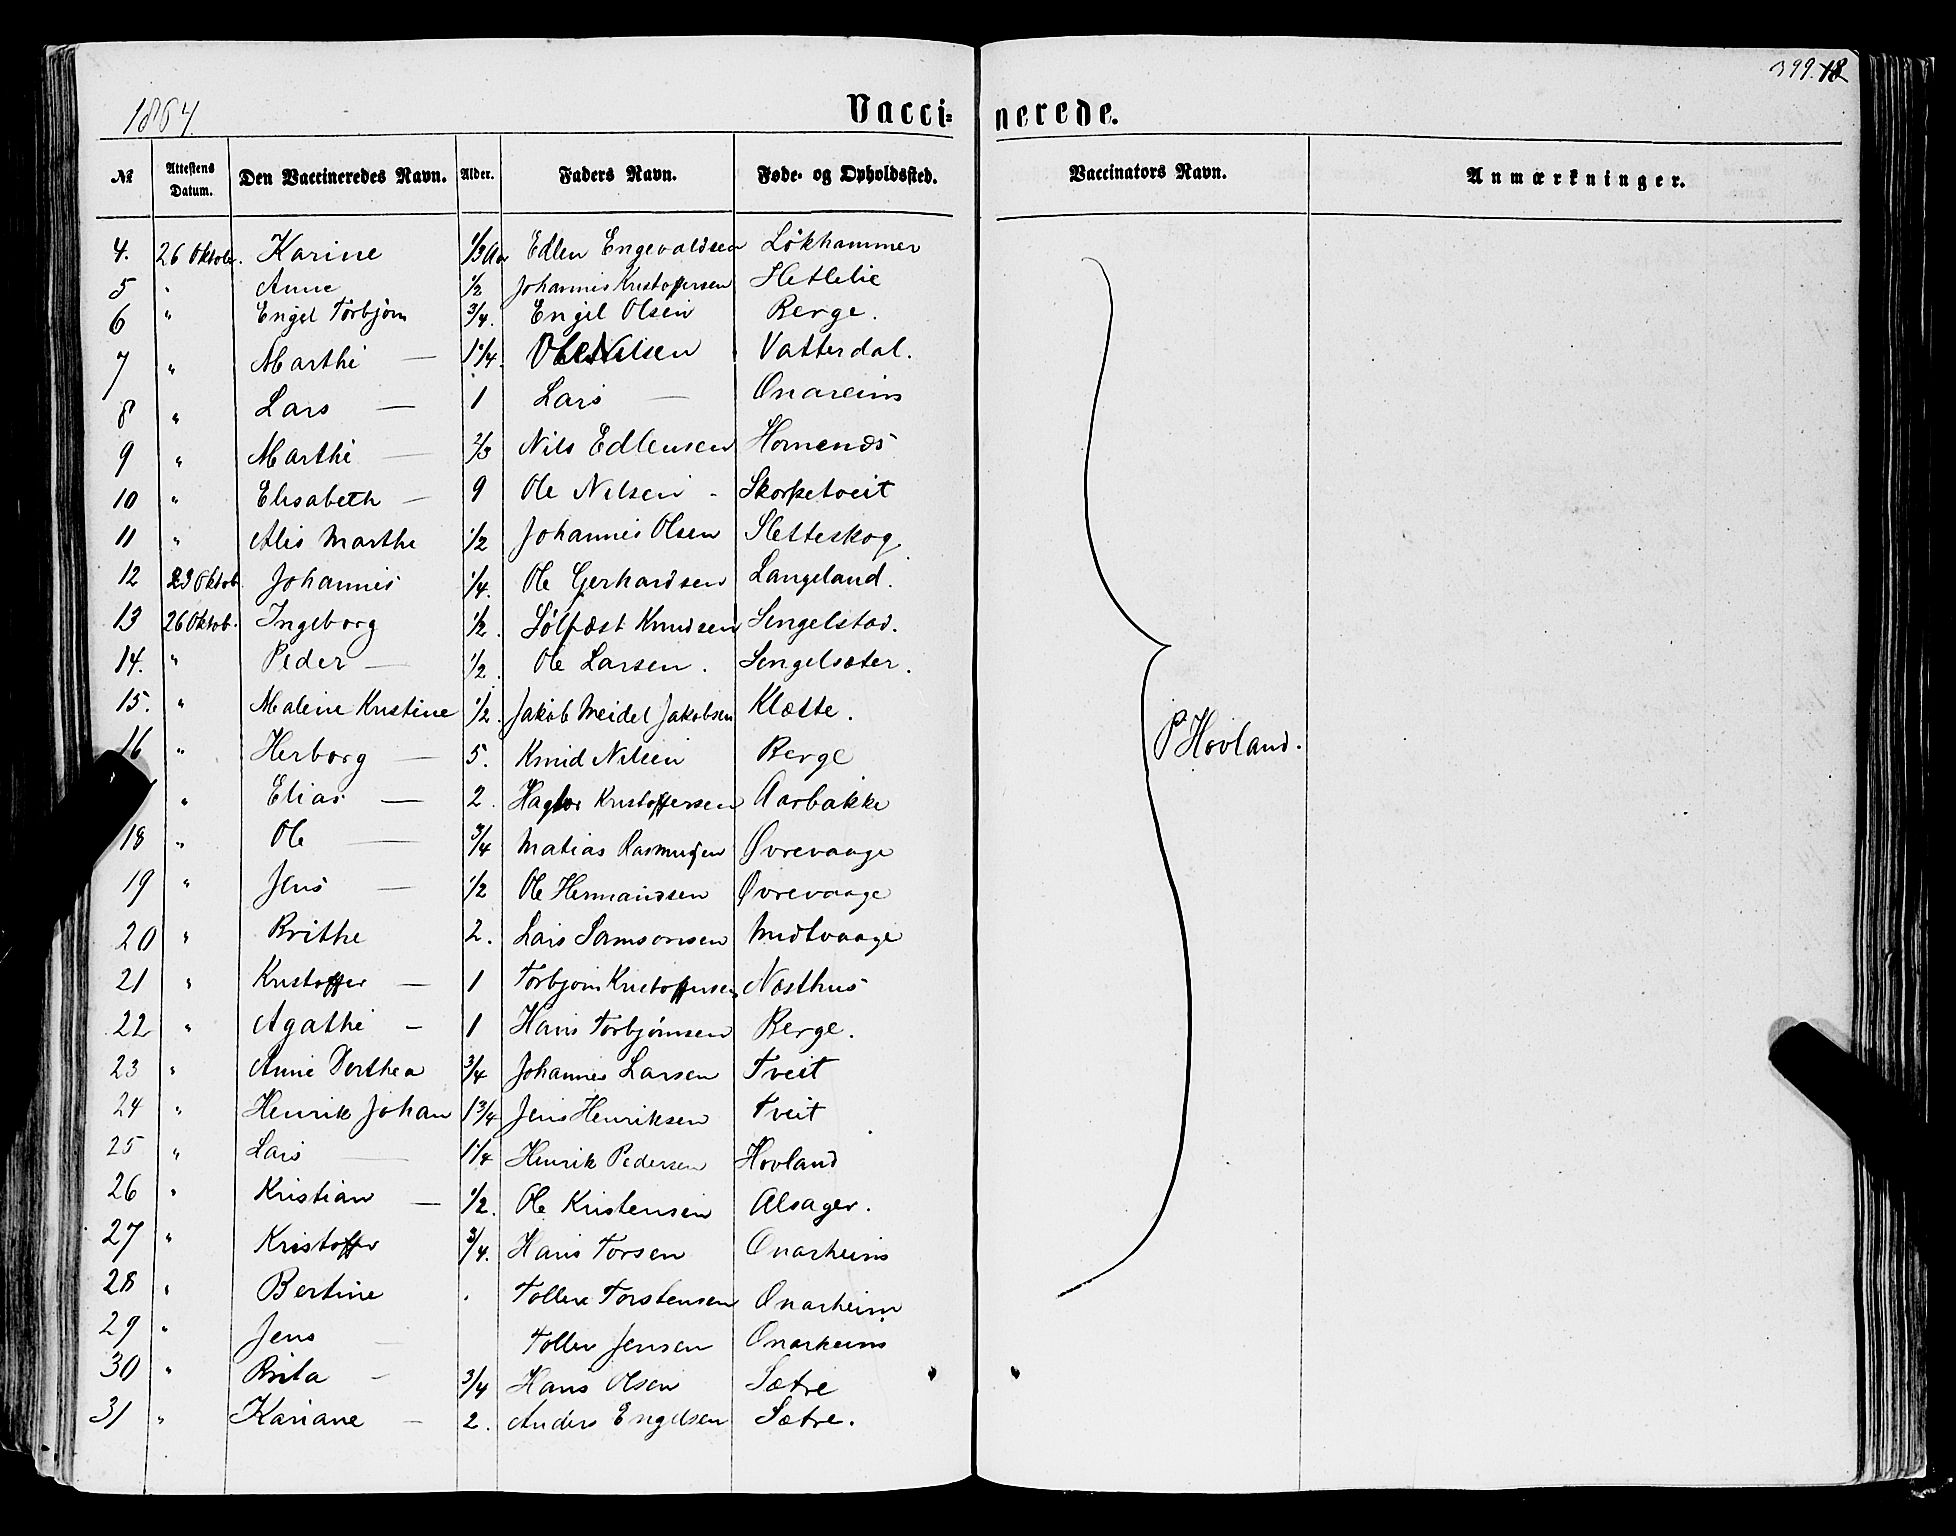 399. 18
1864
Vacci= nerede.
№ Attestens Datum. Den Vaccineredes Navn. Alder. Faders Navn. Føde- og Opholdssted. Vaccinators Navn. Anmærkninger.
4. 26 Oktobr. Karine 1/3 Aar Edlen Engevaldsen Løkhammer
5 " Anne 1/2 Johannes Kristoffersen Hetlelie
6 " Engel Torbjørn 3/4. Engel Olsen Berge.
7 " Marthe — 1 1/4. Ole Nilsen Vatterdal.
8 " Lars — 1 Lars — Onareim
9 " Marthe — 2/3 Nils Edlensen Hornenæs
10 " Elisabeth — 9 Ole Nilsen - Skorpetveit
11 " Alis Marthe 1/2 Johannes Olsen Sletteskog
12 23 Oktob. Johannes 1/4. Ole Gerhardsen Langeland.
13 26 Oktob. Ingeborg 1/2. Sølfæst Knudsen Sengelstad.
14. " Peder — 1/2. Ole Larsen. Sengelsæter.
15. " Malene Kristine 1/2. Jakob Meidel Jakobsen Klætte.
16 " Herborg — 5. Knud Nilsen Berge
" Elias — 2. Kristoffersen Aarbakke
18 " Ole — 3/4 Matias Rasmusen Øvrevaage
19 " Jens — 1/2 Ole Hermandsen Øvrevaage
20 " Brithe 2. Lars Samsonsen Midtvaage
21 " Kristoffer — 1 Torbjørn Kristoffersen Nøsthus
22 " Agathe — 1 Hans Torbjørnsen Berge.
23 " Anne Dorthea 3/4 Johannes Larsen Tveit
24 " Henrik Johan 1 3/4 Jens Henriksen Tveit
25 " Lars — 1 1/4 Henrik Pedersen Hovland
26 " Kristian — 1/2. Ole Kristensen Alsager.
27 " Kristoffer 3/4. Hans Torsen Onarheim
28 " Bertine . Tollev Torstensen Onarheim
29 " Jens — Tollev Jensen Onarheim
30 " Brita - 3/4 Hans Olsen Sætre
31 " Kariane — 2. Anders Engelsen Sætre.
P Hovland.